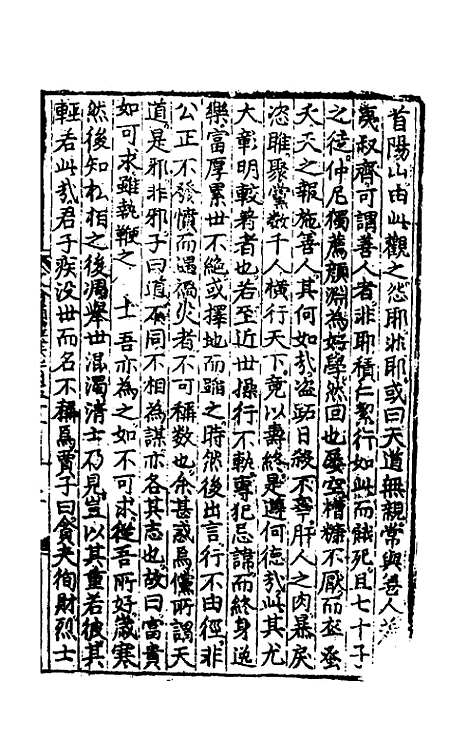 首陽山由此觀之怨耶非耶或曰天道無親常與善人
夷叔齊可謂善人者非耶積仁絜行如此而餓死且七十子
之徒仲尼獨薦顏淵為好學然回也屢空糟糠不厭而卒蚤
夭天之報施善人其何如哉盜跖日殺不辜肝人之肉暴戾
恣睢聚黨數千人橫行天下竟以壽終是遵何德哉此其尤
大彰明較著者也若至近世操行不軌專犯忌諱而終身逸
樂富厚累世不絕或擇地而蹈之時然後出言行不由徑非
公正不發憤而遇禍災者不可稱數也余甚惑焉儻所謂天
道是邪非邪子曰道不同不相為謀亦各其志也故曰富貴
如可求雖執鞭之士吾亦為之如不可求從吾所好歲寒
然後知松柏之後凋舉世混濁清士乃見豈以其重若彼其
輕若此哉君子疾没世而名不稱焉賈子曰貪夫徇財烈士